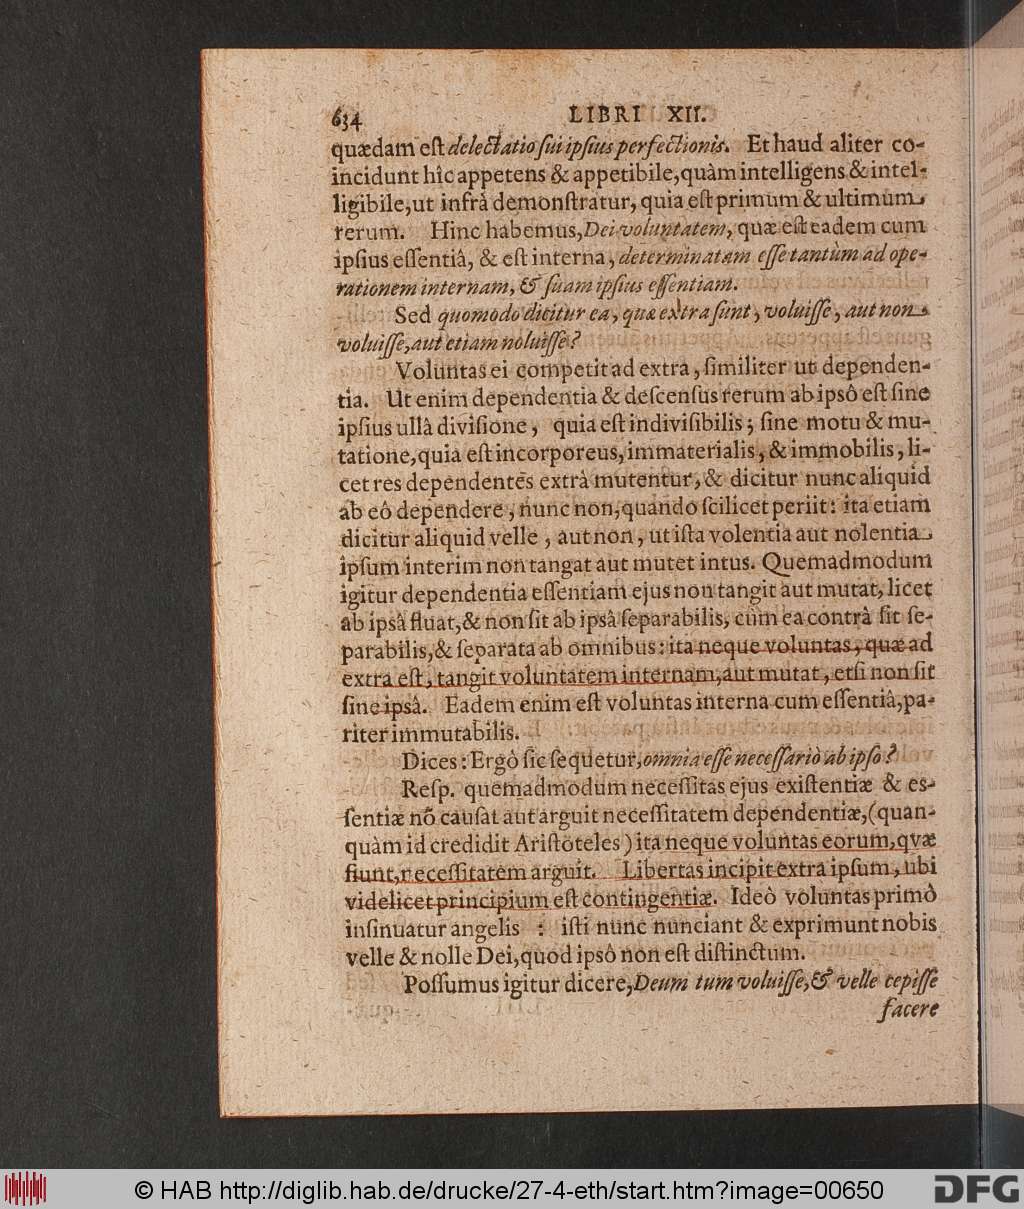 634 LIBRI XII.
quædam eſt delectatio ſui ipſius perfectionis. Et haud aliter co-
incidunt hîc appetens & appetibile, quàm intelligens & intel-
ligibile, ut infrà demonſtratur, quia eſt primum & ultimum
rerum. Hinc habemus, Dei voluntatem, quæ eſt eadem cum
ipſius eſſentiâ, & eſt interna, determinatam eſſe tantùm ad ope-
rationem internam, & ſuam ipſius eſſentiam.
Sed quomodo dicitur ea, quæ extra ſunt, voluiſſe, aut non
voluiſſe, aut etiam noluiſſe?
Voluntas ei competit ad extra, ſimiliter ut dependen-
tia. Ut enim dependentia & deſcenſus rerum ab ipsô eſt ſine
ipſius ullâ diviſione, quia eſt indiviſibilis; ſine motu & mu-
tatione, quia eſt incorporeus, immaterialis, & immobilis, li-
cet res dependentes extrà mutentur, & dicitur nunc aliquid
ab eô dependere, nunc non, quando ſcilicet periit: ita etiam
dicitur aliquid velle, aut non, ut iſta volentia aut nolentia
ipſum interim non tangat aut mutet intus. Quemadmodum
igitur dependentia eſſentiam ejus non tangit aut mutat, licet
ab ipsâ fluat, & non ſit ab ipsâ ſeparabilis, cùm ea contrà ſit ſe-
parabilis, & ſeparata ab omnibus: ita neque voluntas, quæ ad
extra eſt, tangit voluntatem internam, aut mutat, etſi non ſit
ſine ipsâ. Eadem enim eſt voluntas interna cum eſſentiâ, pa-
riter immutabilis.
Dices: Ergò ſic ſequetur, omnia eſſe neceſſariò ab ipſo?
Reſp. quemadmodum neceſſitas ejus exiſtentiæ & eſ-
ſentiæ nõ cauſat aut arguit neceſſitatem dependentiæ, (quan-
quàm id credidit Ariſtoteles) ita neque voluntas eorum, qvæ
fiunt, neceſſitatem arguit. Libertas incipit extra ipſum, ubi
videlicet principium eſt contingentiæ. Ideô voluntas primò
inſinuatur angelis : iſti nunc nunciant & exprimunt nobis
velle & nolle Dei, quod ipsô non eſt diſtinctum.
Poſſumus igitur dicere, Deum tum voluiſſe, & velle cepiſſe
facere
© HAB http://diglib.hab.de/drucke/27-4-eth/start.htm?image=00650
DFG